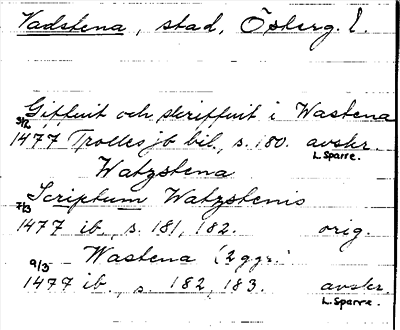 Vadstena, stad, Österg. l.
Giffuit och skriffuit i Wastena
3/2
1477 Trolles jb bil., s. 180. avskr.
L. Sparre.
Watzstena
Scriptum Watzstenis
7/3
1477 ib., s. 181, 182. orig.
Wastena (2 ggr.)
9/3
1477 ib., s. 182, 183. avskr.
L. Sparre.